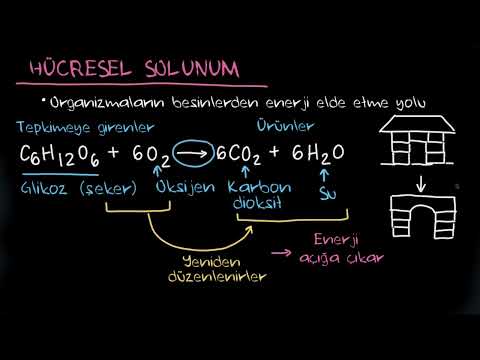 HÜCRESEL SOLUNUM
• Organizmaların besinlerden enerji elde etme yolu
Tepkimeye girenler
Ürünler
C₆H₁₂O₆ + 6O₂ → 6CO₂ + 6H₂O
Glikoz (şeker)
Oksijen
Karbon
dioksit
Su
Yeniden
düzenlenirler
→ Enerji
açığa çıkar